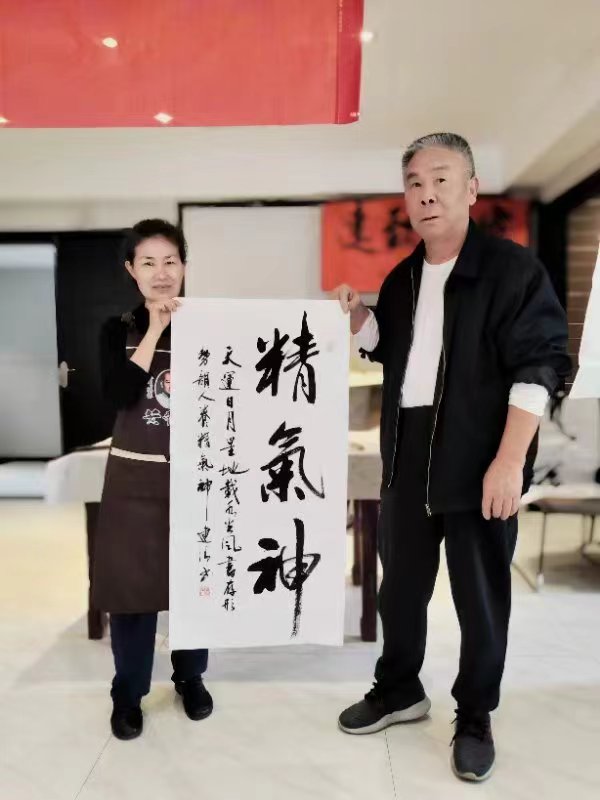 精氣神
天運日月星地載水火風書存形
勢韻人養精氣神